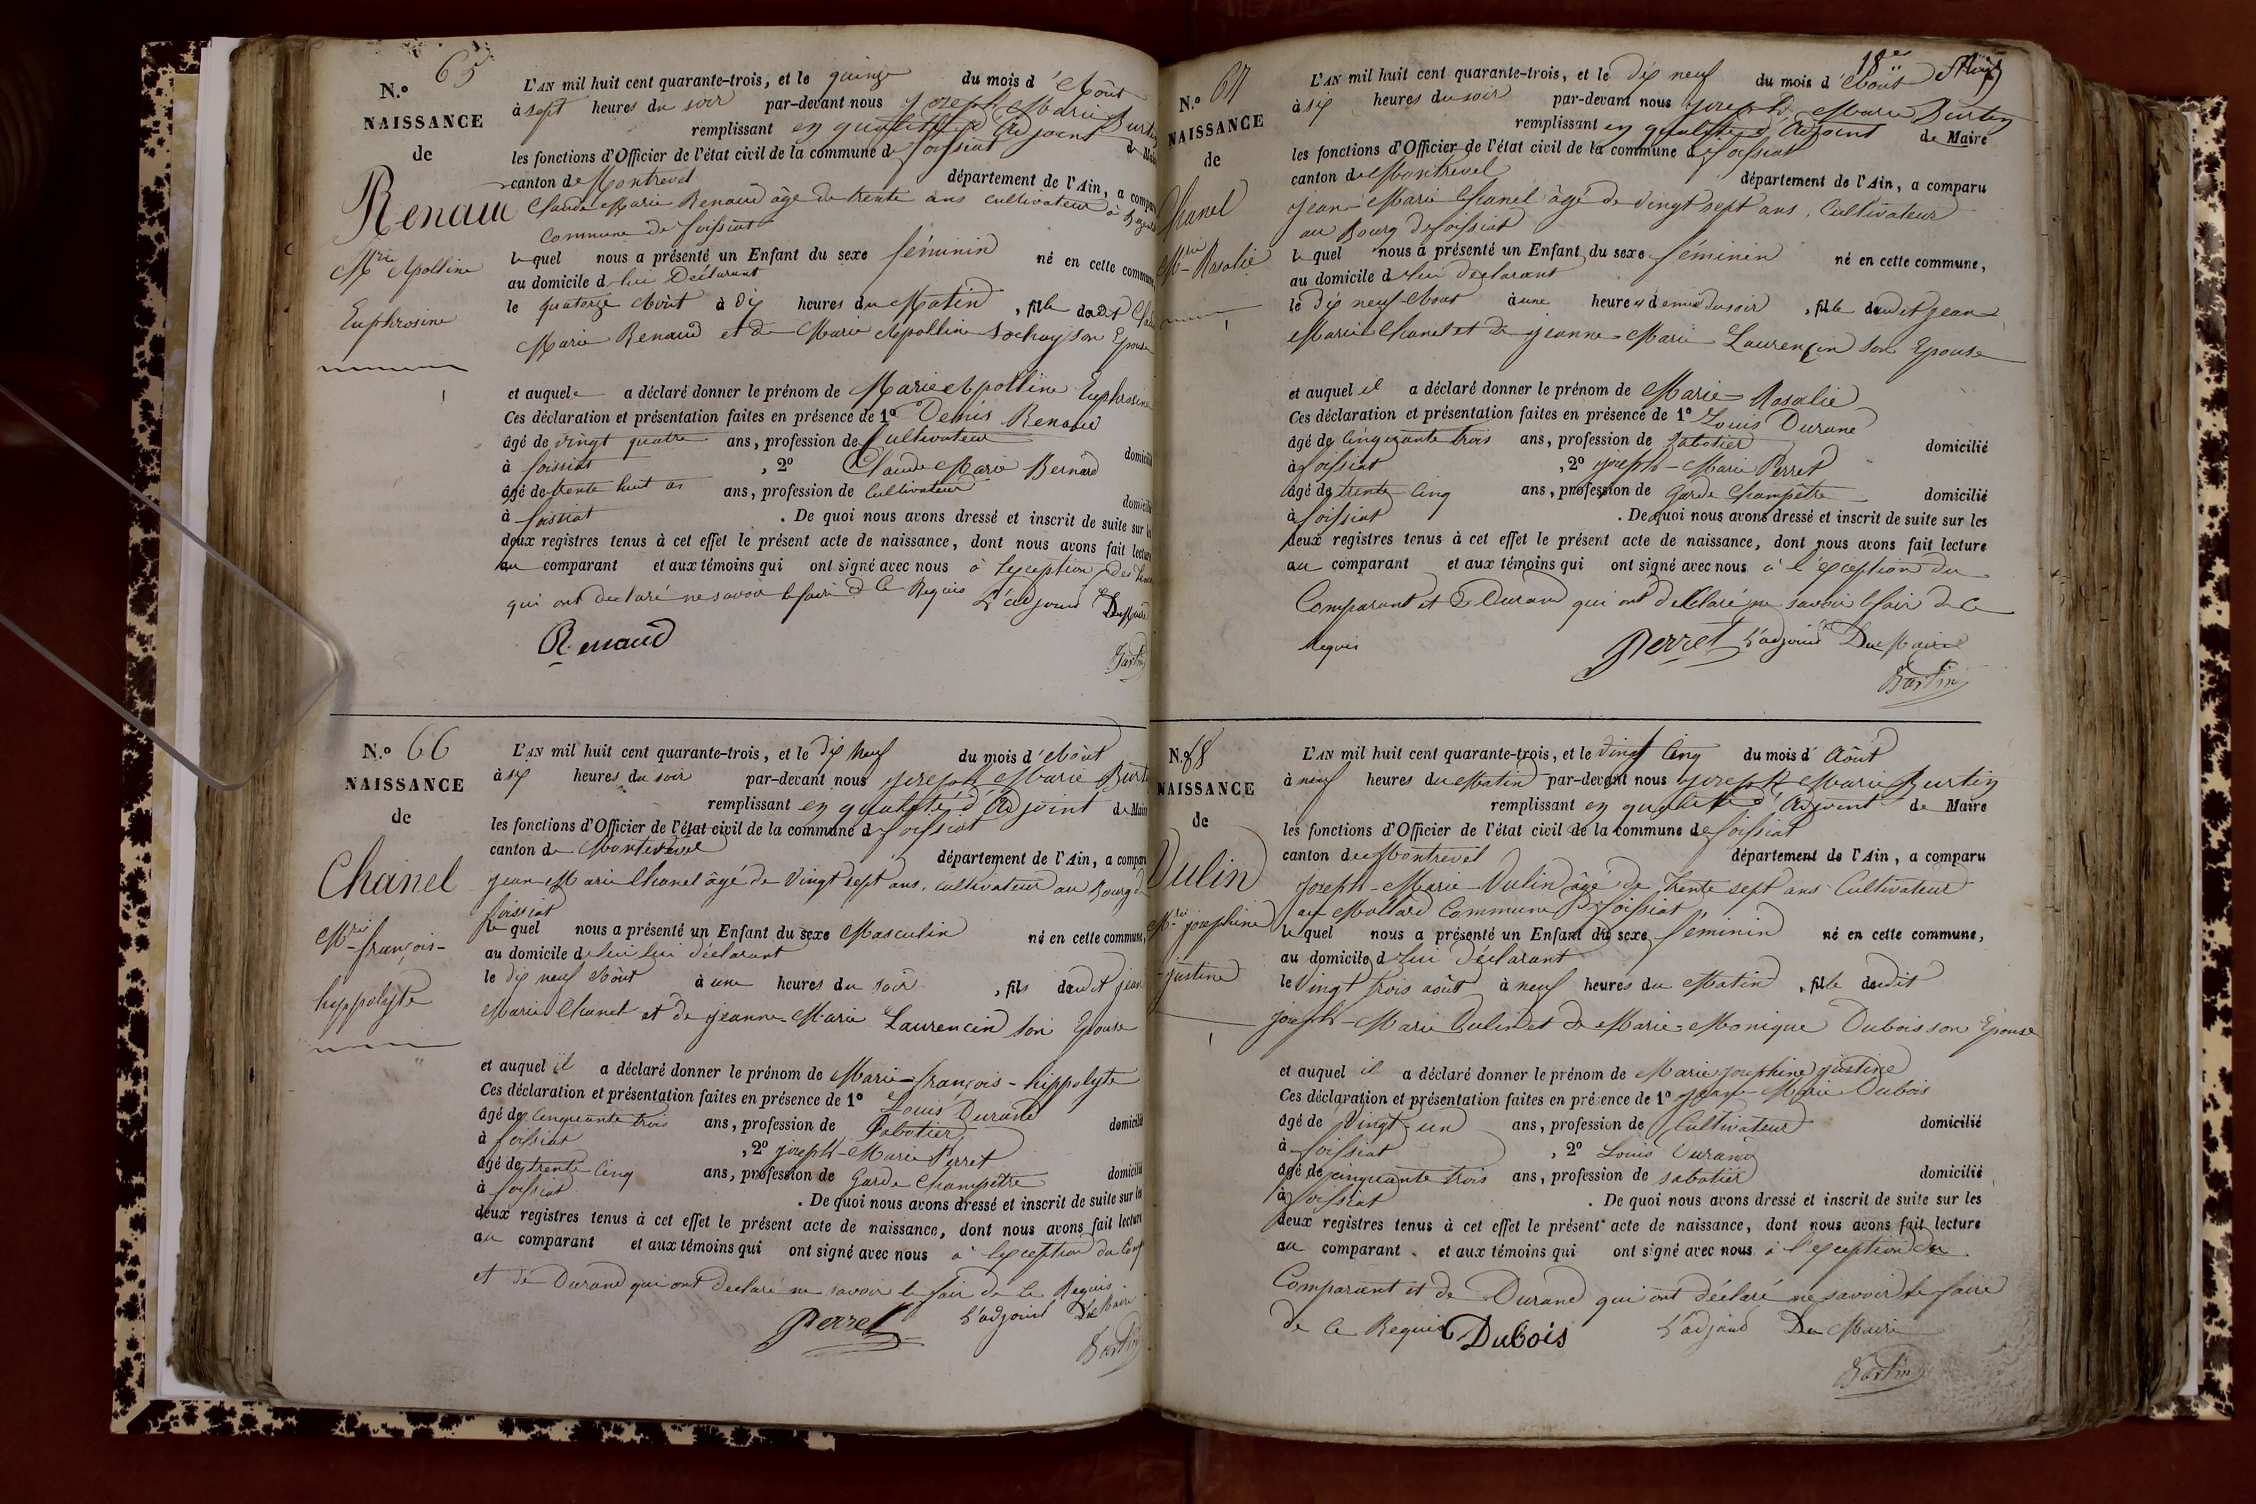 N.º 65
NAISSANCE
de
Renaud
M.rie Apolline
Euphrosine
L'AN mil huit cent quarante-trois, et le quinze du mois d'Août
à sept heures du soir par-devant nous Joseph Marie Burtin
remplissant en qualité d'Adjoint de Maire
les fonctions d'Officier de l'état civil de la commune de foissiat
canton de Montrevel département de l'Ain, a comparu
Claude Marie Renaud âgé de trente ans cultivateur à
Commune de foissiat
lequel nous a présenté un Enfant du sexe féminin né en cette commune,
au domicile de lui Déclarant
le quatorze Août à dix heures du Matin, fille dudit Claude
Marie Renaud et de Marie Apolline Sochay son Epouse
et auquel a déclaré donner le prénom de Marie Apolline Euphrosine
Ces déclaration et présentation faites en présence de 1º Denis Renaud
âgé de vingt quatre ans, profession de Cultivateur domicilié
à foissiat, 2º Claude Marie Bernard
âgé de trente huit ans ans, profession de Cultivateur domicilié
à foissiat. De quoi nous avons dressé et inscrit de suite sur les
deux registres tenus à cet effet le présent acte de naissance, dont nous avons fait lecture
au comparant et aux témoins qui ont signé avec nous à l'exception des
qui ont declaré ne savoir le faire de ce Requis L'adjoint De Maire
Renaud
Burtin
N.º 66
NAISSANCE
de
Chanel
M.rie françois-
hyppolyte
L'AN mil huit cent quarante-trois, et le dix neuf du mois d'Août
à six heures du soir par-devant nous Joseph Marie Burtin
remplissant en qualité d'Adjoint de Maire
les fonctions d'Officier de l'état civil de la commune de foissiat
canton de Montrevel département de l'Ain, a comparu
Jean Marie Chanel âgé de Vingt sept ans, cultivateur au Bourg de
foissiat
lequel nous a présenté un Enfant du sexe Masculin né en cette commune,
au domicile de lui lui déclarant
le dix neuf Août à une heures du soir, fils dudit jean
Marie Chanel et de jeanne-Marie Laurencin son Epouse
et auquel il a déclaré donner le prénom de Marie-françois-hippolyte
Ces déclaration et présentation faites en présence de 1º Louis Durand
âgé de cinquante trois ans, profession de Sabotier domicilié
à foissiat, 2º joseph-Marie Perret
âgé de trente Cinq ans, profession de Garde Champêtre domicilié
à foissiat. De quoi nous avons dressé et inscrit de suite sur les
deux registres tenus à cet effet le présent acte de naissance, dont nous avons fait lecture
au comparant et aux témoins qui ont signé avec nous à l'exception du Comp
et de Durand qui ont declaré ne savoir le fair de ce Requis
Perret L'adjoint De Maire
Burtin
18
N.º 67
NAISSANCE
de
Chanel
M.rie Rosalie
L'AN mil huit cent quarante-trois, et le dix neuf du mois d'Août
à six heures du soir par-devant nous Joseph Marie Burtin
remplissant en qualité d'Adjoint de Maire
les fonctions d'Officier de l'état civil de la commune de foissiat
canton de Montrevel département de l'Ain, a comparu
Jean-Marie Chanel âgé de Vingt sept ans, Cultivateur
au Bourg de foissiat
lequel nous a présenté un Enfant du sexe féminin né en cette commune,
au domicile de lui déclarant
le dix neuf Août à une heure & demie du soir, fille dudit jean
Marie Chanel et de jeanne-Marie Laurençin son Epouse
et auquel il a déclaré donner le prénom de Marie-Rosalie
Ces déclaration et présentation faites en présence de 1º Louis Durand
âgé de Cinquante trois ans, profession de Sabotier domicilié
à foissiat, 2º joseph-Marie Perret
âgé de trente Cinq ans, profession de Garde Champêtre domicilié
à foissiat. De quoi nous avons dressé et inscrit de suite sur les
deux registres tenus à cet effet le présent acte de naissance, dont nous avons fait lecture
au comparant et aux témoins qui ont signé avec nous à l'exception du
Comparant et Durand qui ont déclaré ne savoir le fair de ce
Requis Perret L'adjoint Du Maire
Burtin
N.º 68
NAISSANCE
de
Vulin
M.rie josephine
-justine
L'AN mil huit cent quarante-trois, et le Vingt Cinq du mois d'Août
à neuf heures du Matin par-devant nous Joseph Marie Burtin
remplissant en qualité d'Adjoint de Maire
les fonctions d'Officier de l'état civil de la commune de foissiat
canton de Montrevel département de l'Ain, a comparu
Joseph-Marie-Vulin âgé de trente sept ans Cultivateur
au Mollard Commune de foissiat
lequel nous a présenté un Enfant du sexe féminin né en cette commune,
au domicile de lui déclarant
le Vingt trois août à neuf heures du Matin, fille dudit
joseph-Marie Vulin et de Marie-Monique Dubois son Epouse
et auquel il a déclaré donner le prénom de Marie josephine justine
Ces déclaration et présentation faites en présence de 1º Marie Dubois
âgé de Vingt-un ans, profession de Cultivateur domicilié
à foissiat, 2º Louis Durand
âgé de cinquante trois ans, profession de sabotier domicilié
à foissiat. De quoi nous avons dressé et inscrit de suite sur les
deux registres tenus à cet effet le présent acte de naissance, dont nous avons fait lecture
au comparant et aux témoins qui ont signé avec nous à l'exception du
Comparant et de Durand qui ont déclaré ne savoir le faire
de ce Requis Dubois L'adjoint De Maire
Burtin